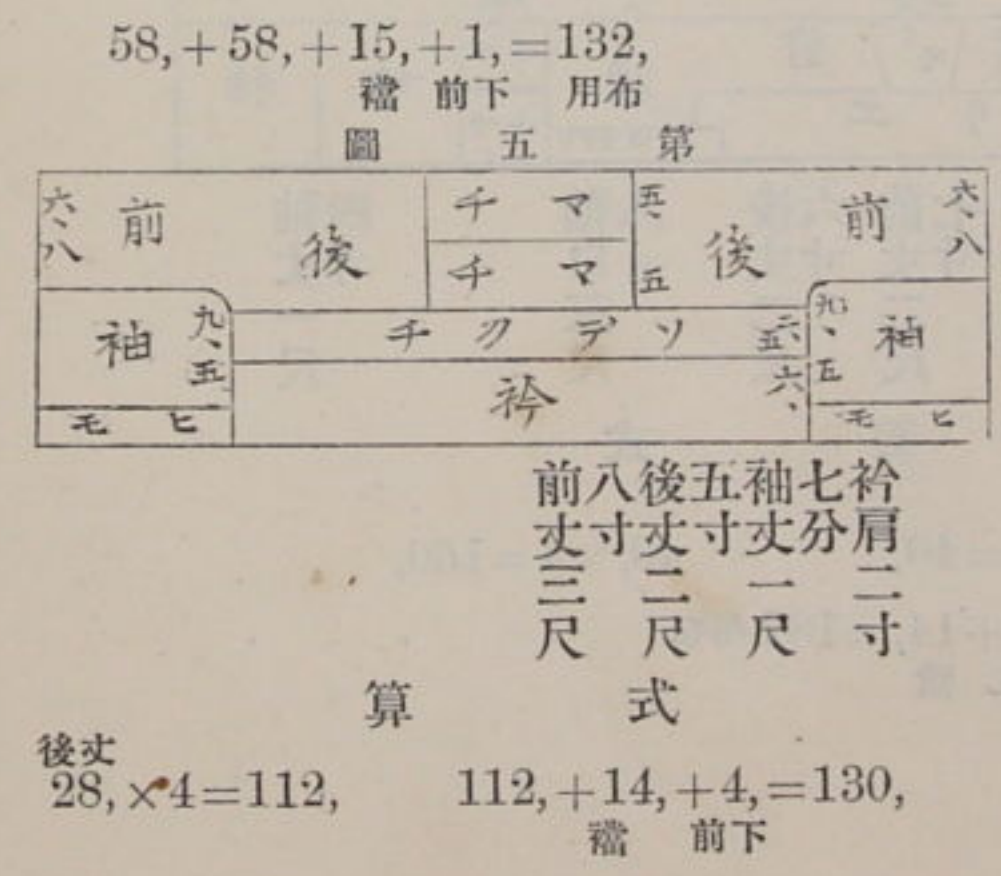 58,+58,+15,+1,=132,
襠 前下 用布
第五圖
六、八
前
後
五、五
マチ
マチ
後
前
六、八
袖
九、五
ソデクチ
袖
九、五
衿
六、
ヒモ
ヒモ
衿肩二寸
七分
袖丈一尺
五寸
後丈二尺
八寸
前丈三尺
算式
後丈
28,×4=112, 112,+14,+4,=130,
襠 前下